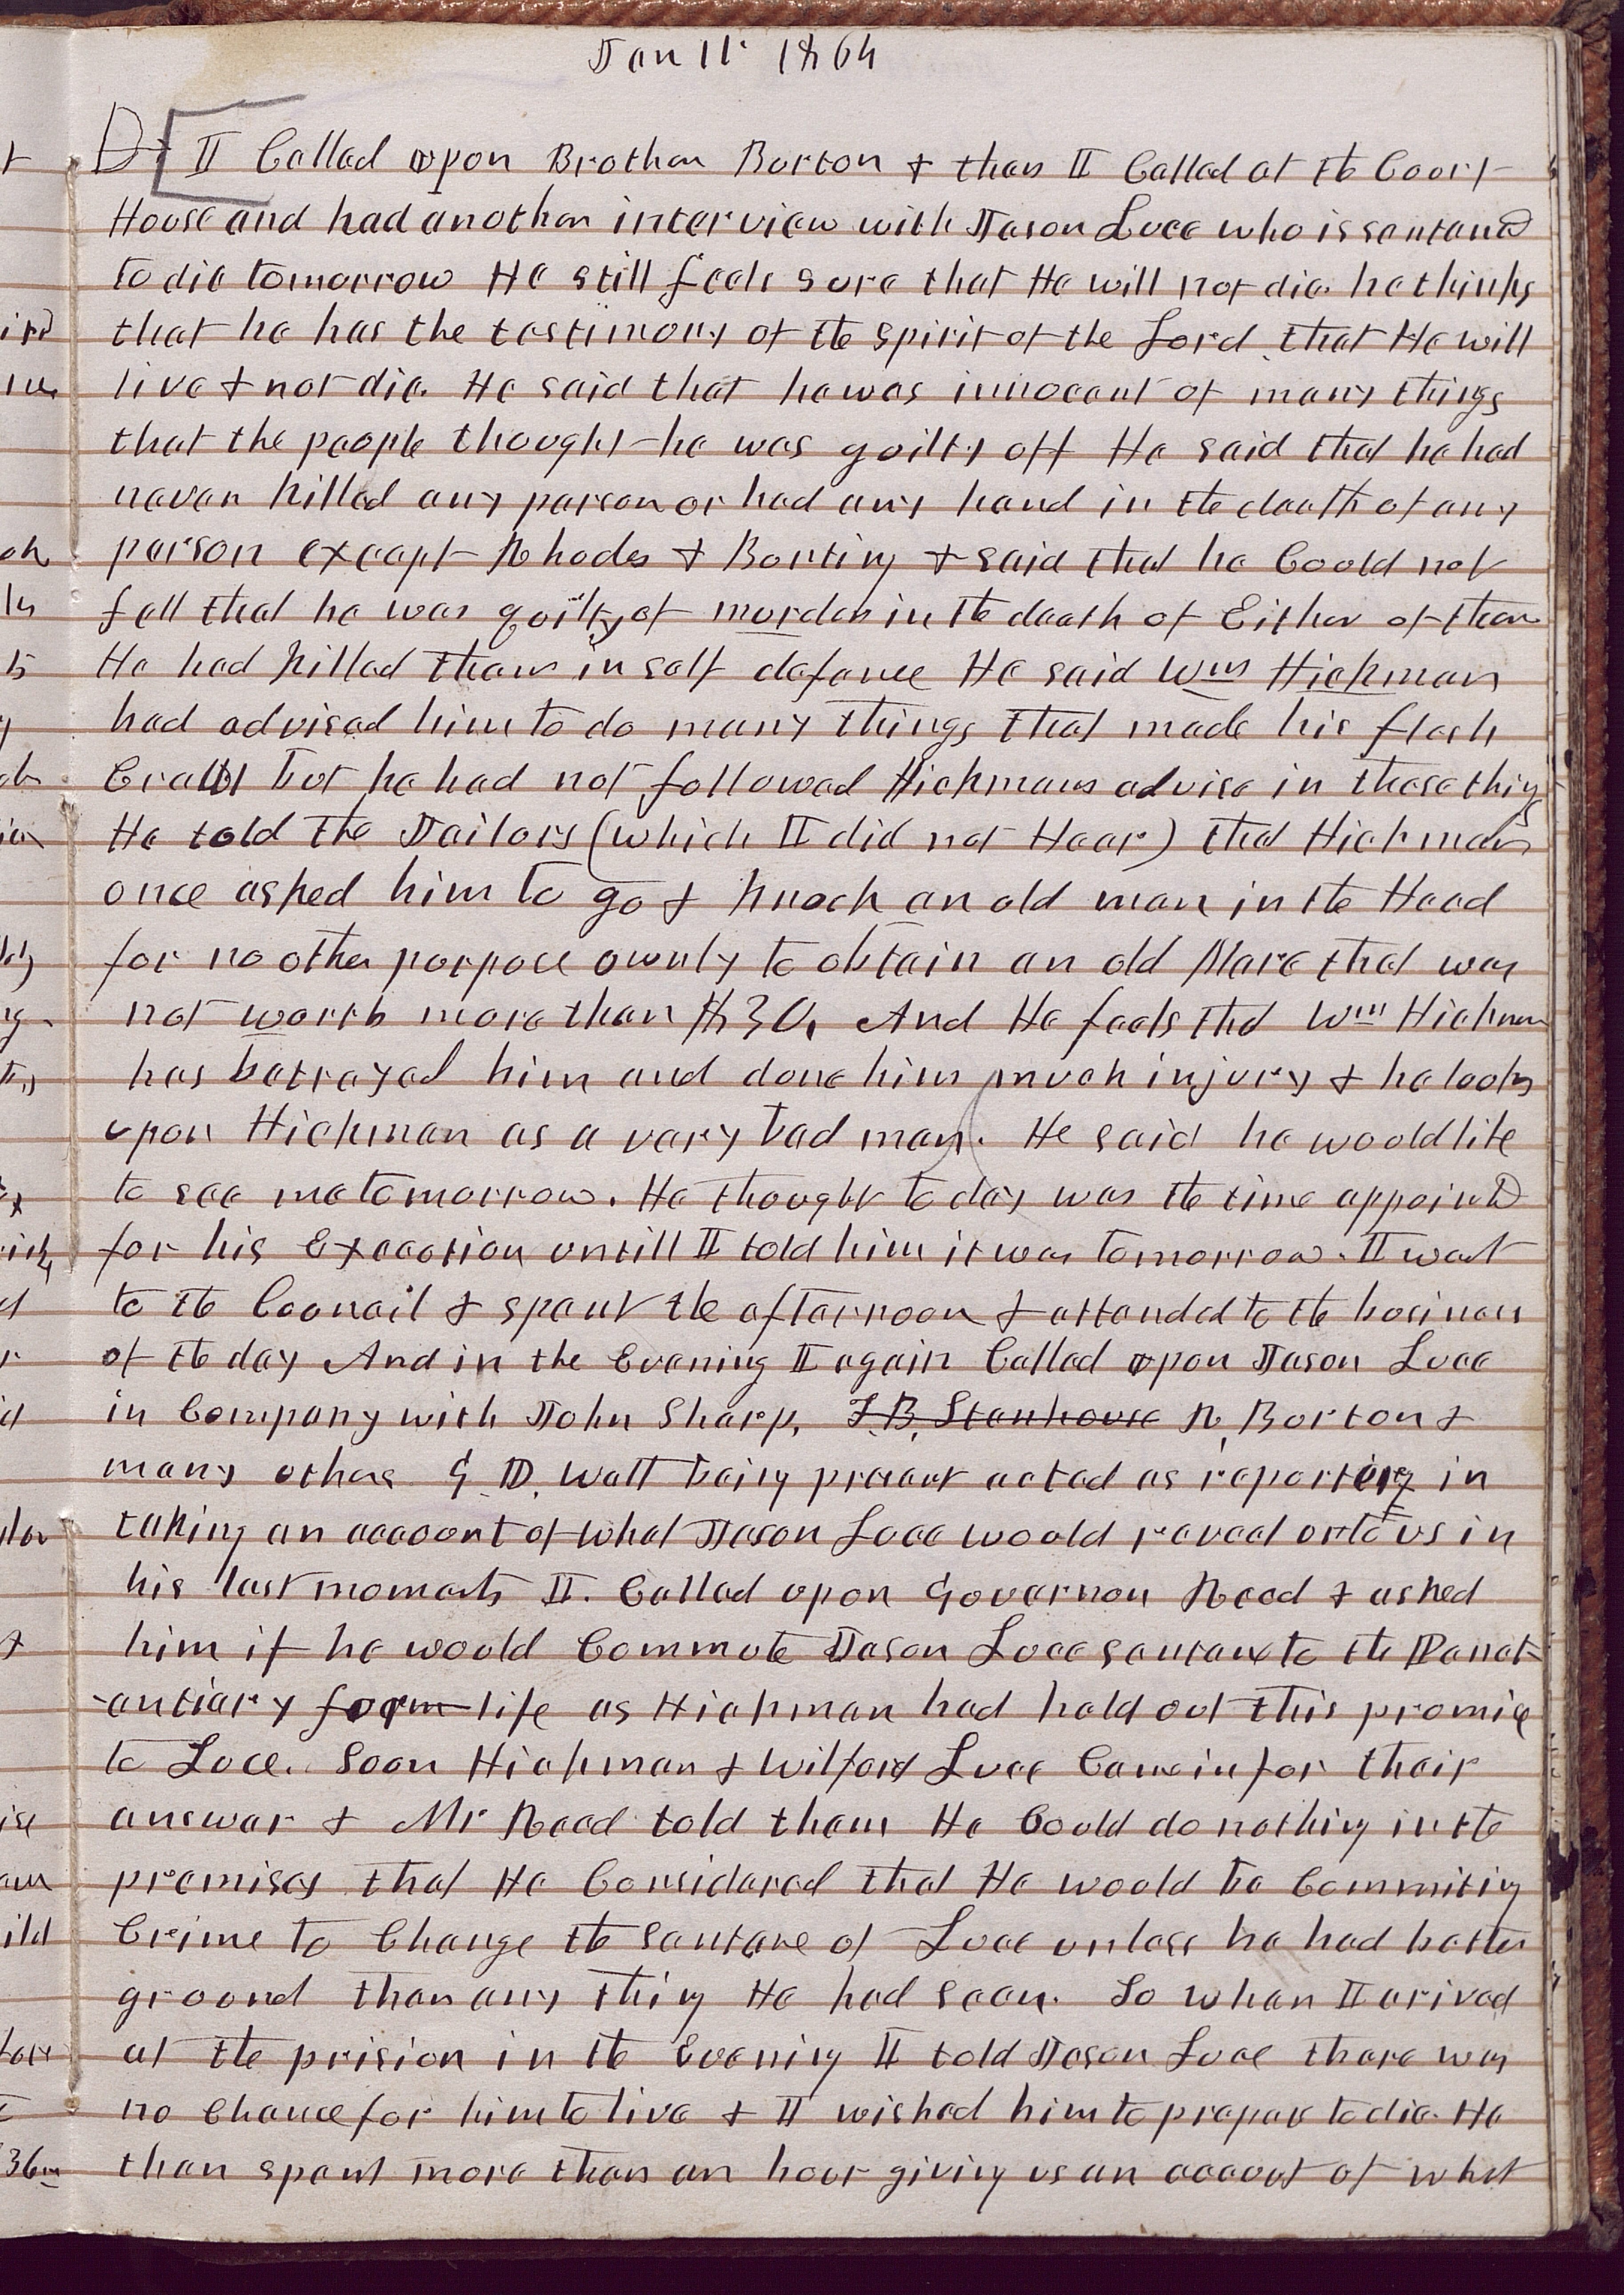 Jan 11. 1864
I Called upon Brother Burton & then I Called at the Court
House and had another interview with Jason Luce who is sentancd
to die tomorrow He still feels sure that He will not die. he thinks
that he has the testimony of the spirit of the Lord that He will
live & not die. He said that he was innocent of many things
that the people thought he was guilty off He said that he had
never killed any person or had any hand in the death of any
person except Rhodes & Bunting & said that he Could not
fell that he was guilty of murder in the death of Either of them
He had killed them in self defence He said Wm Hickman
had advised him to do many things that made his flesh
Crawl but he had not followed Hickmans advise in these things
He told the Jailors (which I did not Hear) that Hickman
once asked him to go & knock an old man in the Head
for no other purpose ownly to obtain an old Mare that was
not worth more than $30, And He feels that Wm Hickman
has betrayed him and done him much injury & he looks
upon Hickman as a very bad man. He said he would like
to see me tomorrow. He thought to day was the time appointd
for his Execution untill I told him it was tomorrow. I went
to the Council & spent the afternoon & attended to the business
of the day And in the Evening I again Called upon Jason Luce
in Company with John Sharp, T. B. Stenhouse R, Burton &
many others G. D. Watt being present acted as reporting in
taking an account of what Jason Luce would reveal unto us in
his last moments I. Called upon Governor Reed & asked
him if he would Commute Jason Luce sentance to the Panet-
-entiary for life as Hickman had held out this promise
to Luce. Soon Hickman & Wilford Luce Came in for their
answer & Mr Reed told them He Could do nothing in the
premises that He Considered that He would be Commiting
Crime to Change the Sentance of Luce unless he had better
ground than any thing He had seen. So when I arived
at the prision in the Evening I told Jason Luce there was
no Chance for him to live & I wished him to prepare to die. He
then spent more than an hour giving us an account of what